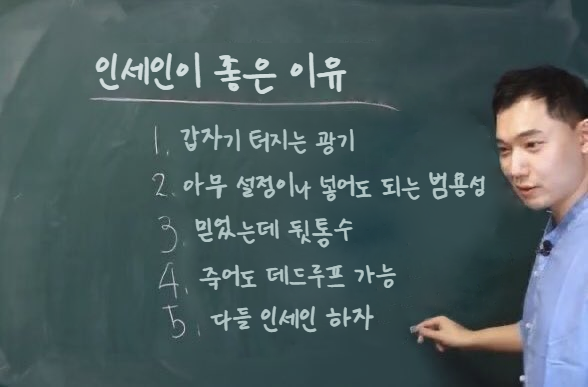 인세인이 좋은 이유
1. 갑자기 터지는 광기
2. 아무 설정이나 넣어도 되는 범용성
3. 믿었는데 뒷통수
4. 죽어도 데드루프 가능
5. 다들 인세인 하자